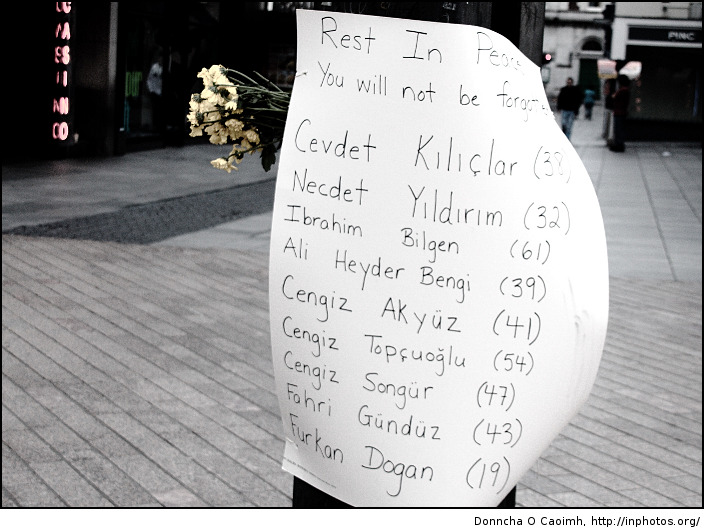 Rest In Peace
You will not be
Cevdet Kılıçlar (38)
Necdet Yıldırım (32)
Ibrahim Bilgen (61)
Ali Heyder Bengi (39)
Cengiz Akyüz (41)
Cengiz Topçuoğlu (54)
Cengiz Songür (47)
Fahri Gündüz (43)
Furkan Dogan (19)
Donncha O Caoimh, http://inphotos.org/